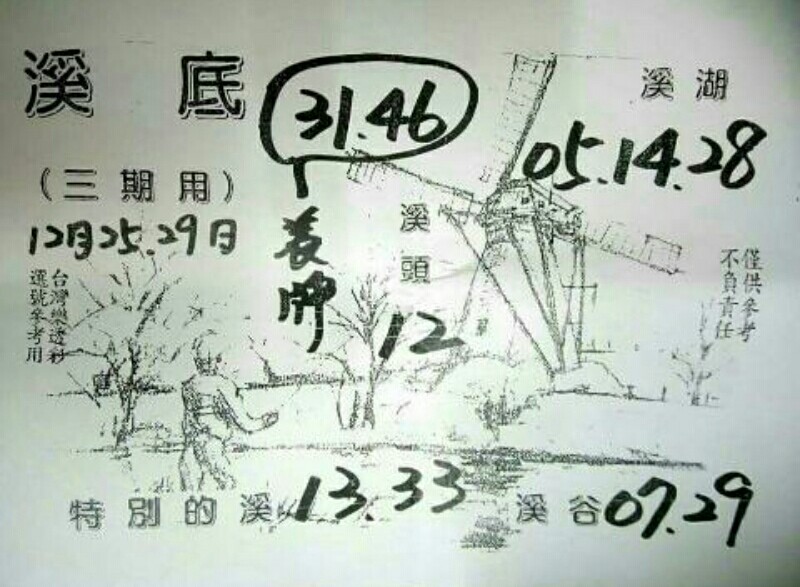 溪底
31.46
溪湖
05.14.28
(三期用)
12月25.29日
台灣樂透彩
選號參考用
溪頭
12
師
僅供參考
不負責任
特別的溪
13.33
溪谷
07.29